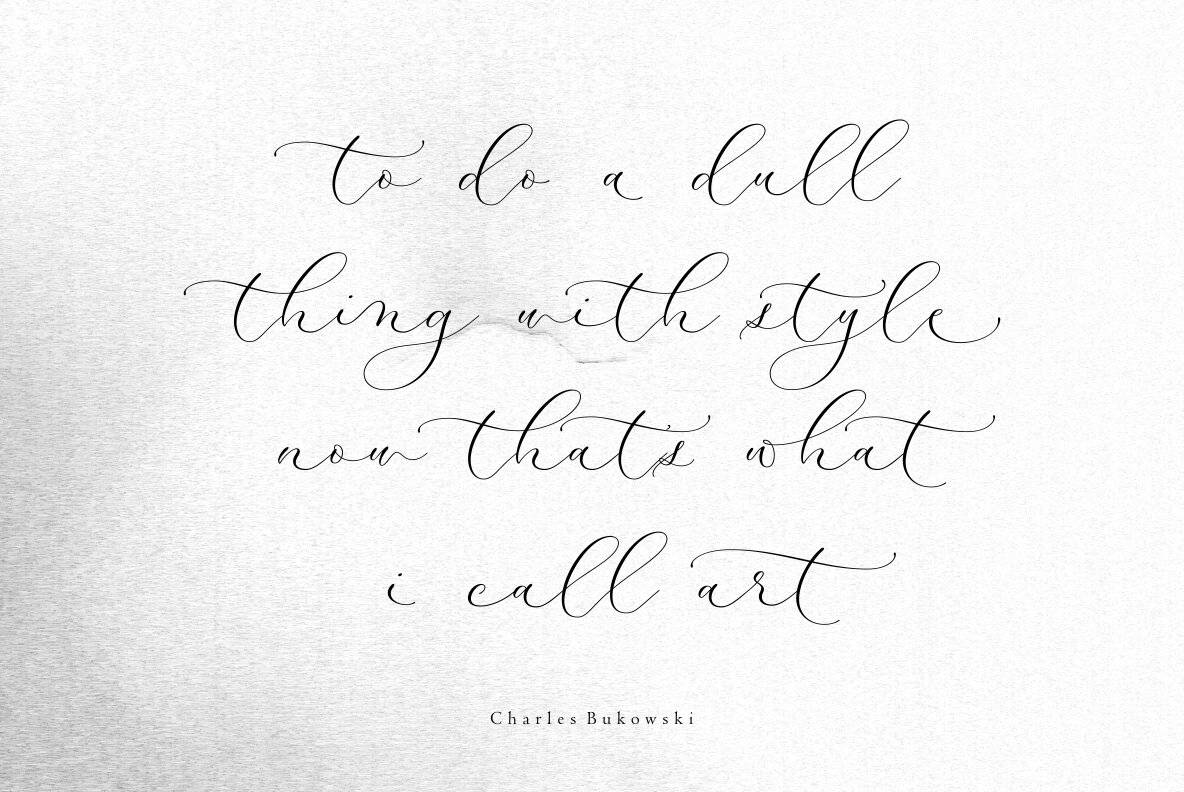 to do a dull
thing with style
now that's what
i call art
Charles Bukowski